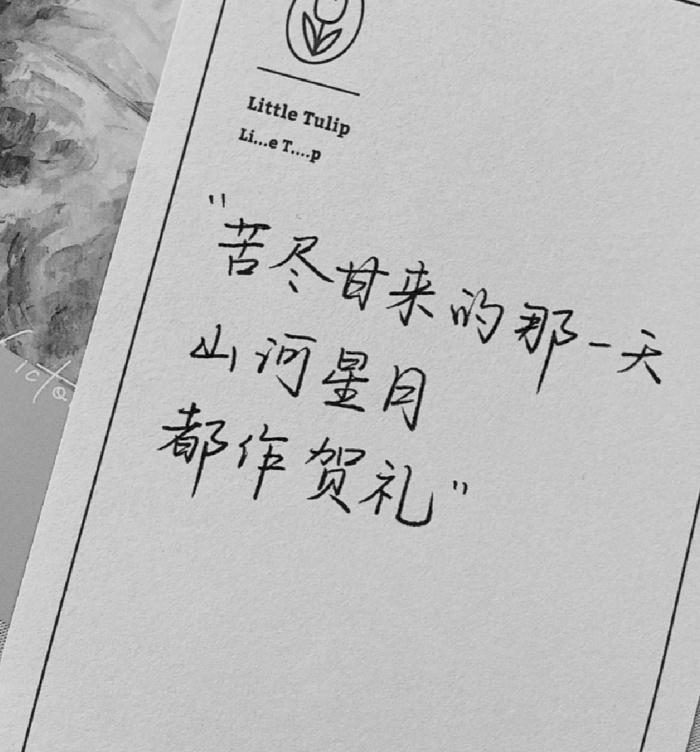 Little Tulip
Li...e T....p
"苦尽甘来的那一天
山河星月
都作贺礼"